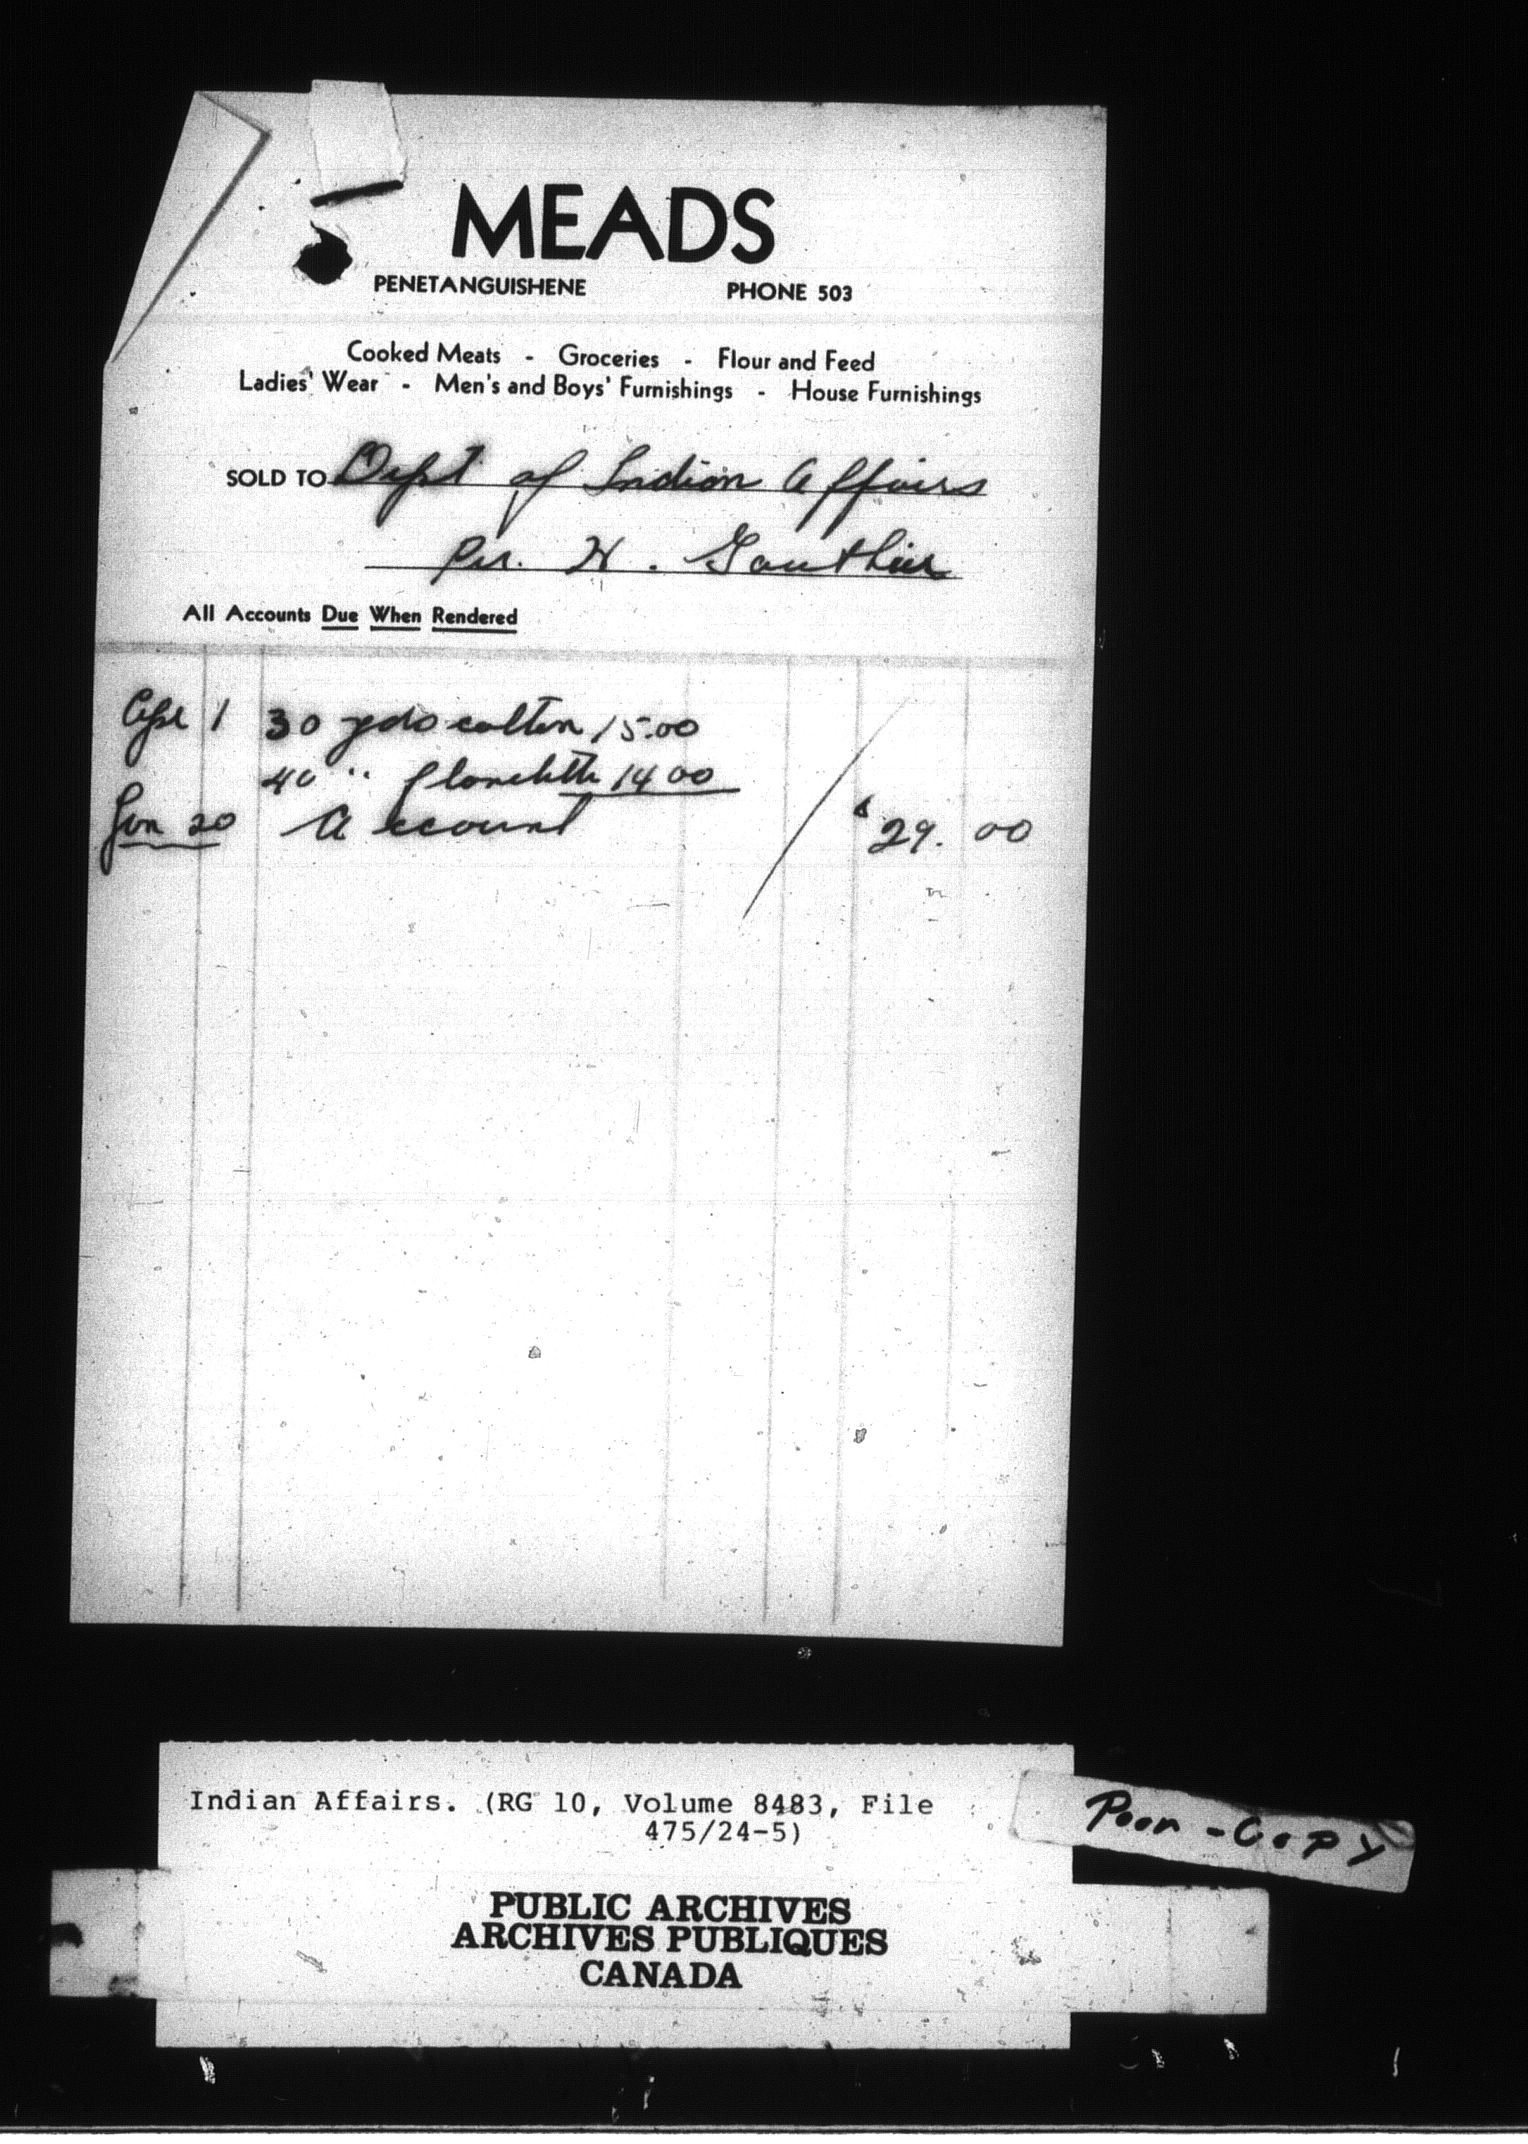 MEADS
PENETANGUISHENE PHONE 503
Cooked Meats - Groceries - Flour and Feed
Ladies' Wear - Men's and Boys' Furnishings - House Furnishings
SOLD TO Dept of Indian Affairs
Per. H. Gauthier
All Accounts Due When Rendered
Apl 1 30 yds cotton 15.00
40 " flanelette 14 00
Jun 20 Account $ 29. 00
Indian Affairs. (RG 10, Volume 8483, File
475/24-5)
Poor - Copy
PUBLIC ARCHIVES
ARCHIVES PUBLIQUES
CANADA